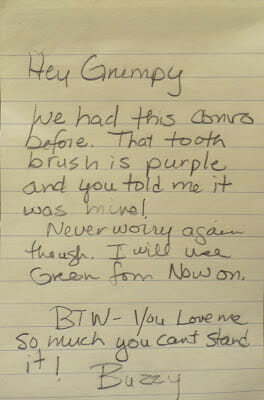 Hey Grumpy
We had this convo
before. That tooth
brush is purple
and you told me it
was mine!
Never worry again
though. I will use
Green fom Now on.
BTW - You Love me
so much you cant stand
it!
Buzzy